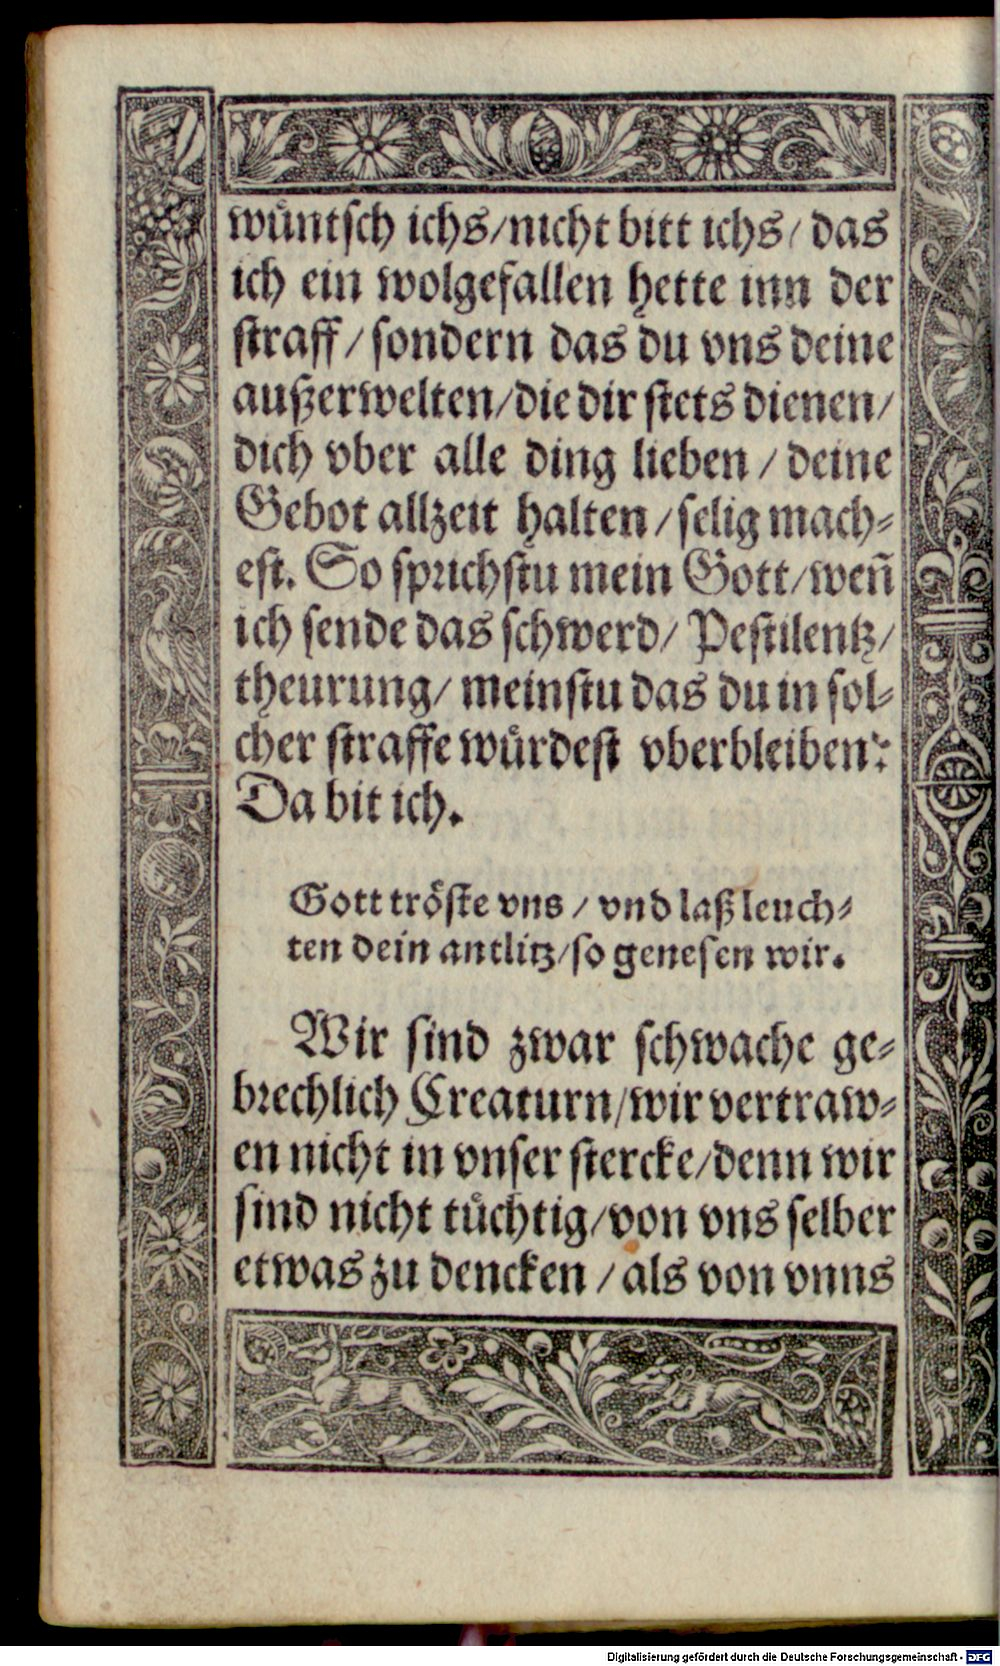 wuͤntsch ichs/nicht bitt ichs/ das
ich ein wolgefallen hette inn der
straff/ sondern das du vns deine
außerwelten/die dir stets dienen/
dich vber alle ding lieben / deine
Gebot allzeit halten/selig mach⸗
est. So sprichstu mein Gott/wen̄
ich sende das schwerd/ Pestilentz/
theurung/ meinstu das du in sol⸗
cher straffe wuͤrdest vberbleiben?
Da bit ich.
Gott troͤste vns / vnd laß leuch⸗
ten dein antlitz/so genesen wir.
Wir sind zwar schwache ge⸗
brechlich Creaturn/wir vertraw⸗
en nicht in vnser stercke/denn wir
sind nicht tuͤchtig/von vns selber
etwas zu dencken / als von vnns
Digitalisierung gefördert durch die Deutsche Forschungsgemeinschaft - DFG